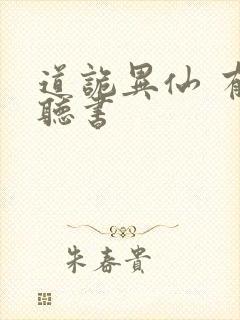 道詭異仙
聽書
朱春貴